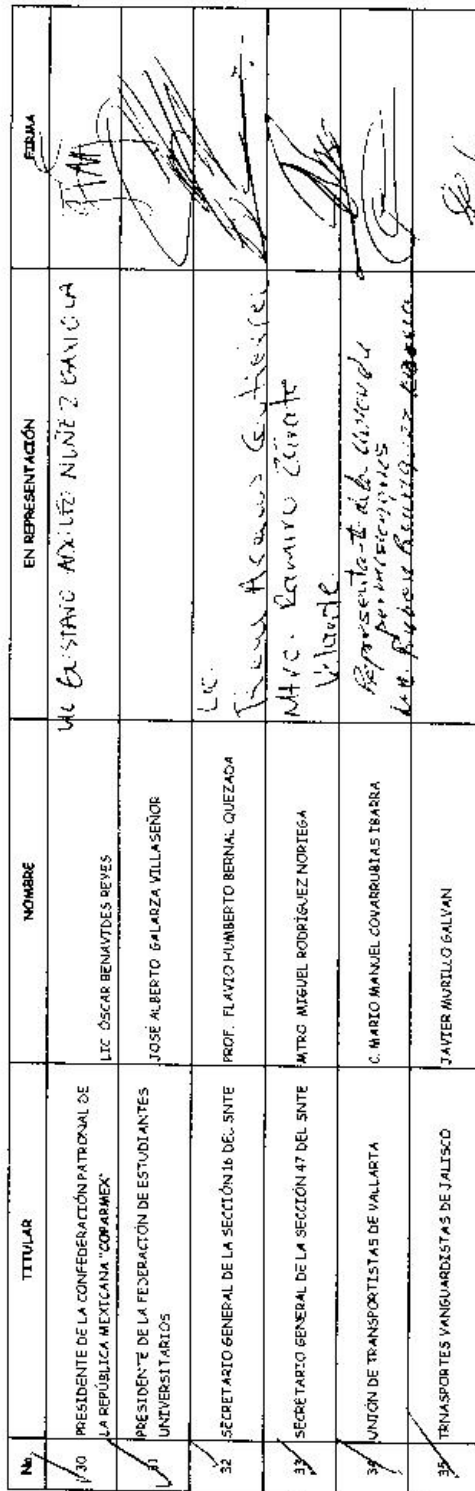 No. TITULAR NOMBRE EN REPRESENTACIÓN FIRMA
30 PRESIDENTE DE LA CONFEDERACIÓN PATRONAL DE
LA REPÚBLICA MEXICANA "COPARMEX" LIC ÓSCAR BENAVIDES REYES Lic GUSTAVO ADOLFO NUÑEZ GAXIOLA
31 PRESIDENTE DE LA FEDERACIÓN DE ESTUDIANTES
UNIVERSITARIOS JOSÉ ALBERTO GALARZA VILLASEÑOR
32 SECRETARIO GENERAL DE LA SECCIÓN 16 DEL SNTE PROF. FLAVIO HUMBERTO BERNAL QUEZADA Lic.
Gutiérrez
33 SECRETARIO GENERAL DE LA SECCIÓN 47 DEL SNTE MTRO MIGUEL RODRÍGUEZ NORIEGA Mtro. Ramiro Zárate
Velarde
34 UNIÓN DE TRANSPORTISTAS DE VALLARTA C. MARIO MANUEL COVARRUBIAS IBARRA Representante de la
Rubén
35 TRNASPORTES VANGUARDISTAS DE JALISCO JAVIER MURILLO GALVAN